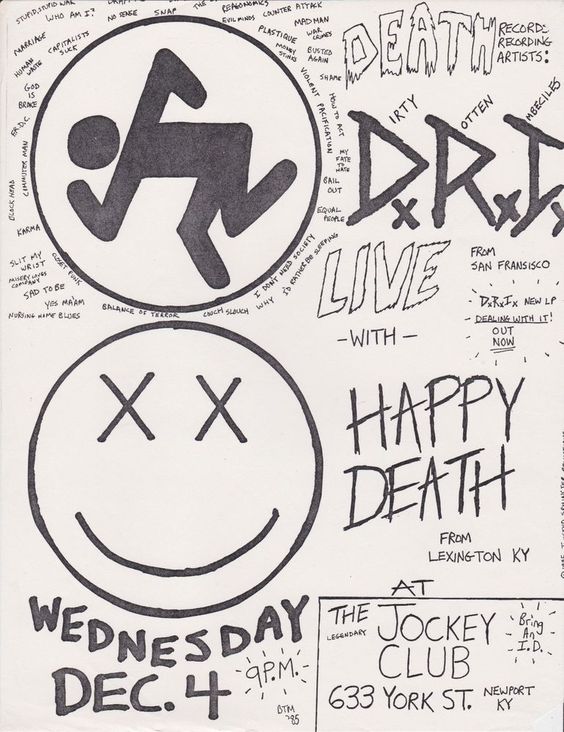 STUPID, STUPID WAR
WHO AM I?
NO SENSE
SNAP
THE
REAGONOMICS
EVIL MINDS
COUNTER ATTACK
PLASTIQUE
MADMAN
WAR
CRIMES
MONEY
STINKS
BUSTED
AGAIN
SHAME
VIOLENT PACIFICATION
HOW TO ACT
MY
FATE
TO
HATE
BAIL
OUT
EQUAL
PEOPLE
I DON'T NEED SOCIETY
I'D RATHER BE SLEEPING
WHY
COUCH SLOUCH
BALANCE OF TERROR
CLOSET PUNK
YES MA'AM
NURSING HOME BLUES
SAD TO BE
MISERY LOVES
COMPANY
SLIT MY
WRIST
KARMA
BLOCKHEAD
COMMUTER MAN
F.R.D.C
GOD
IS
BROKE
HUMAN
WASTE
MARRIAGE
CAPITALISTS
SUCK
DEATH
RECORDS
RECORDING
ARTISTS:
IRTY
OTTEN
MBECILES
DxRxI
LIVE
FROM
SAN FRANSISCO
-WITH-
DxRxIx NEW LP
DEALING WITH IT!
OUT
NOW
HAPPY
DEATH
FROM
LEXINGTON KY
WEDNESDAY
DEC. 4
9 P.M.
BTM
'85
AT
THE
LEGENDARY
JOCKEY
CLUB
Bring
An
I.D.
633 YORK ST. NEWPORT
KY